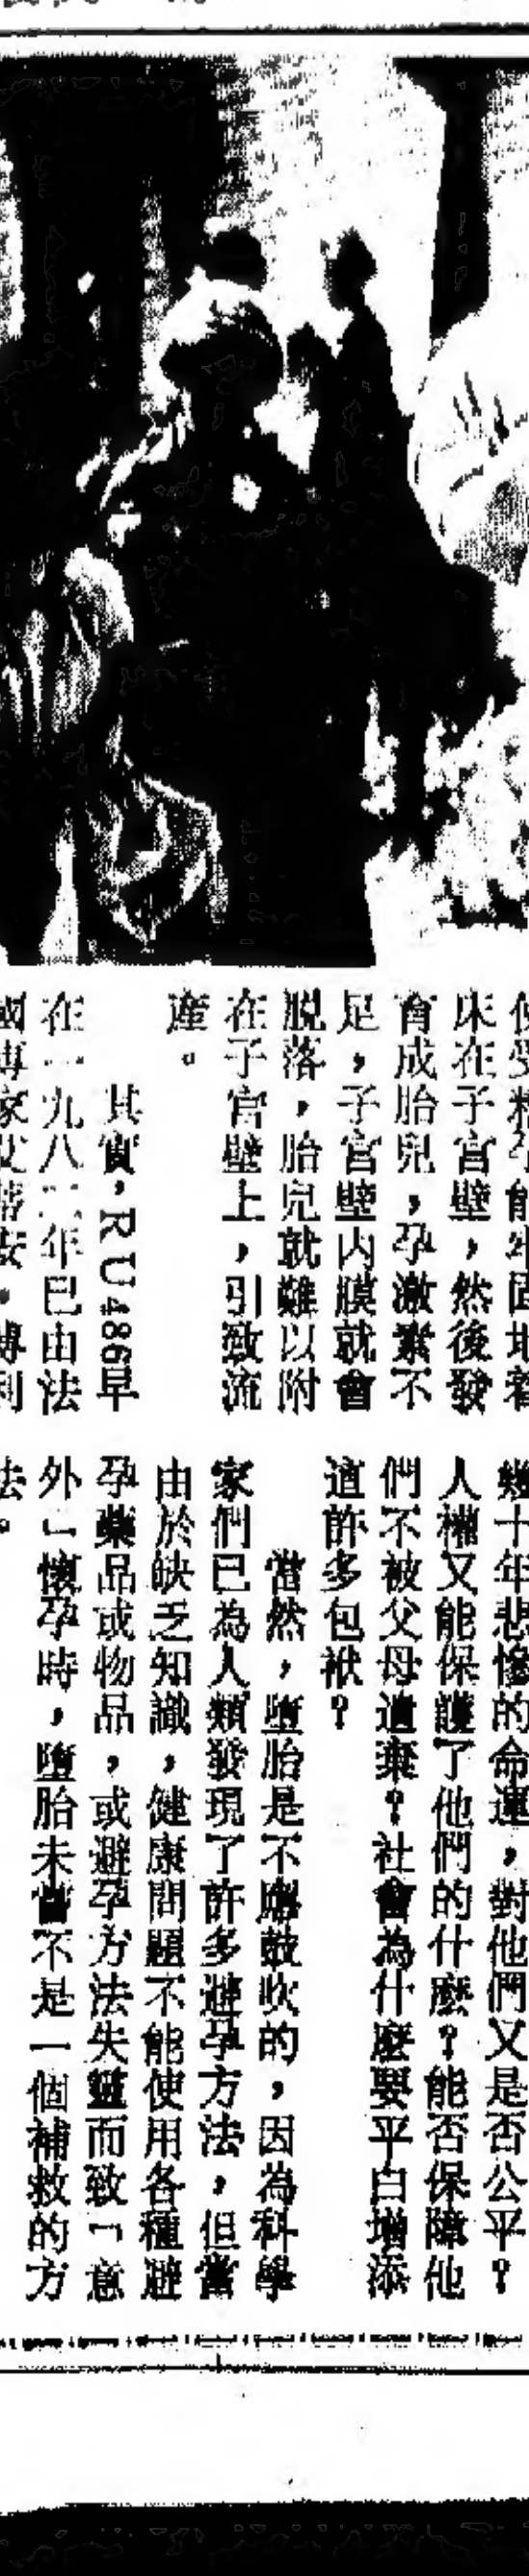 使受精卵能牢固地着
床在子宮壁，然後發
育成胎兒，孕激素不
足，子宮壁内膜就會
脱落，胎兒就難以附
在子宮壁上，引致流
產。
其實，RU486早
在一九八二年已由法
國專家
幾十年悲慘的命運，對他們又是否公平？
人權又能保護了他們的什麼？能否保障他
們不被父母遺棄？社會為什麼要平白增添
這許多包袱？
當然，墮胎是不應鼓吹的，因為科學
家們已為人類發現了許多避孕方法，但當
由於缺乏知識，健康問題不能使用各種避
孕藥品或物品，或避孕方法失靈而致「意
外」懷孕時，墮胎未嘗不是一個補救的方
法。